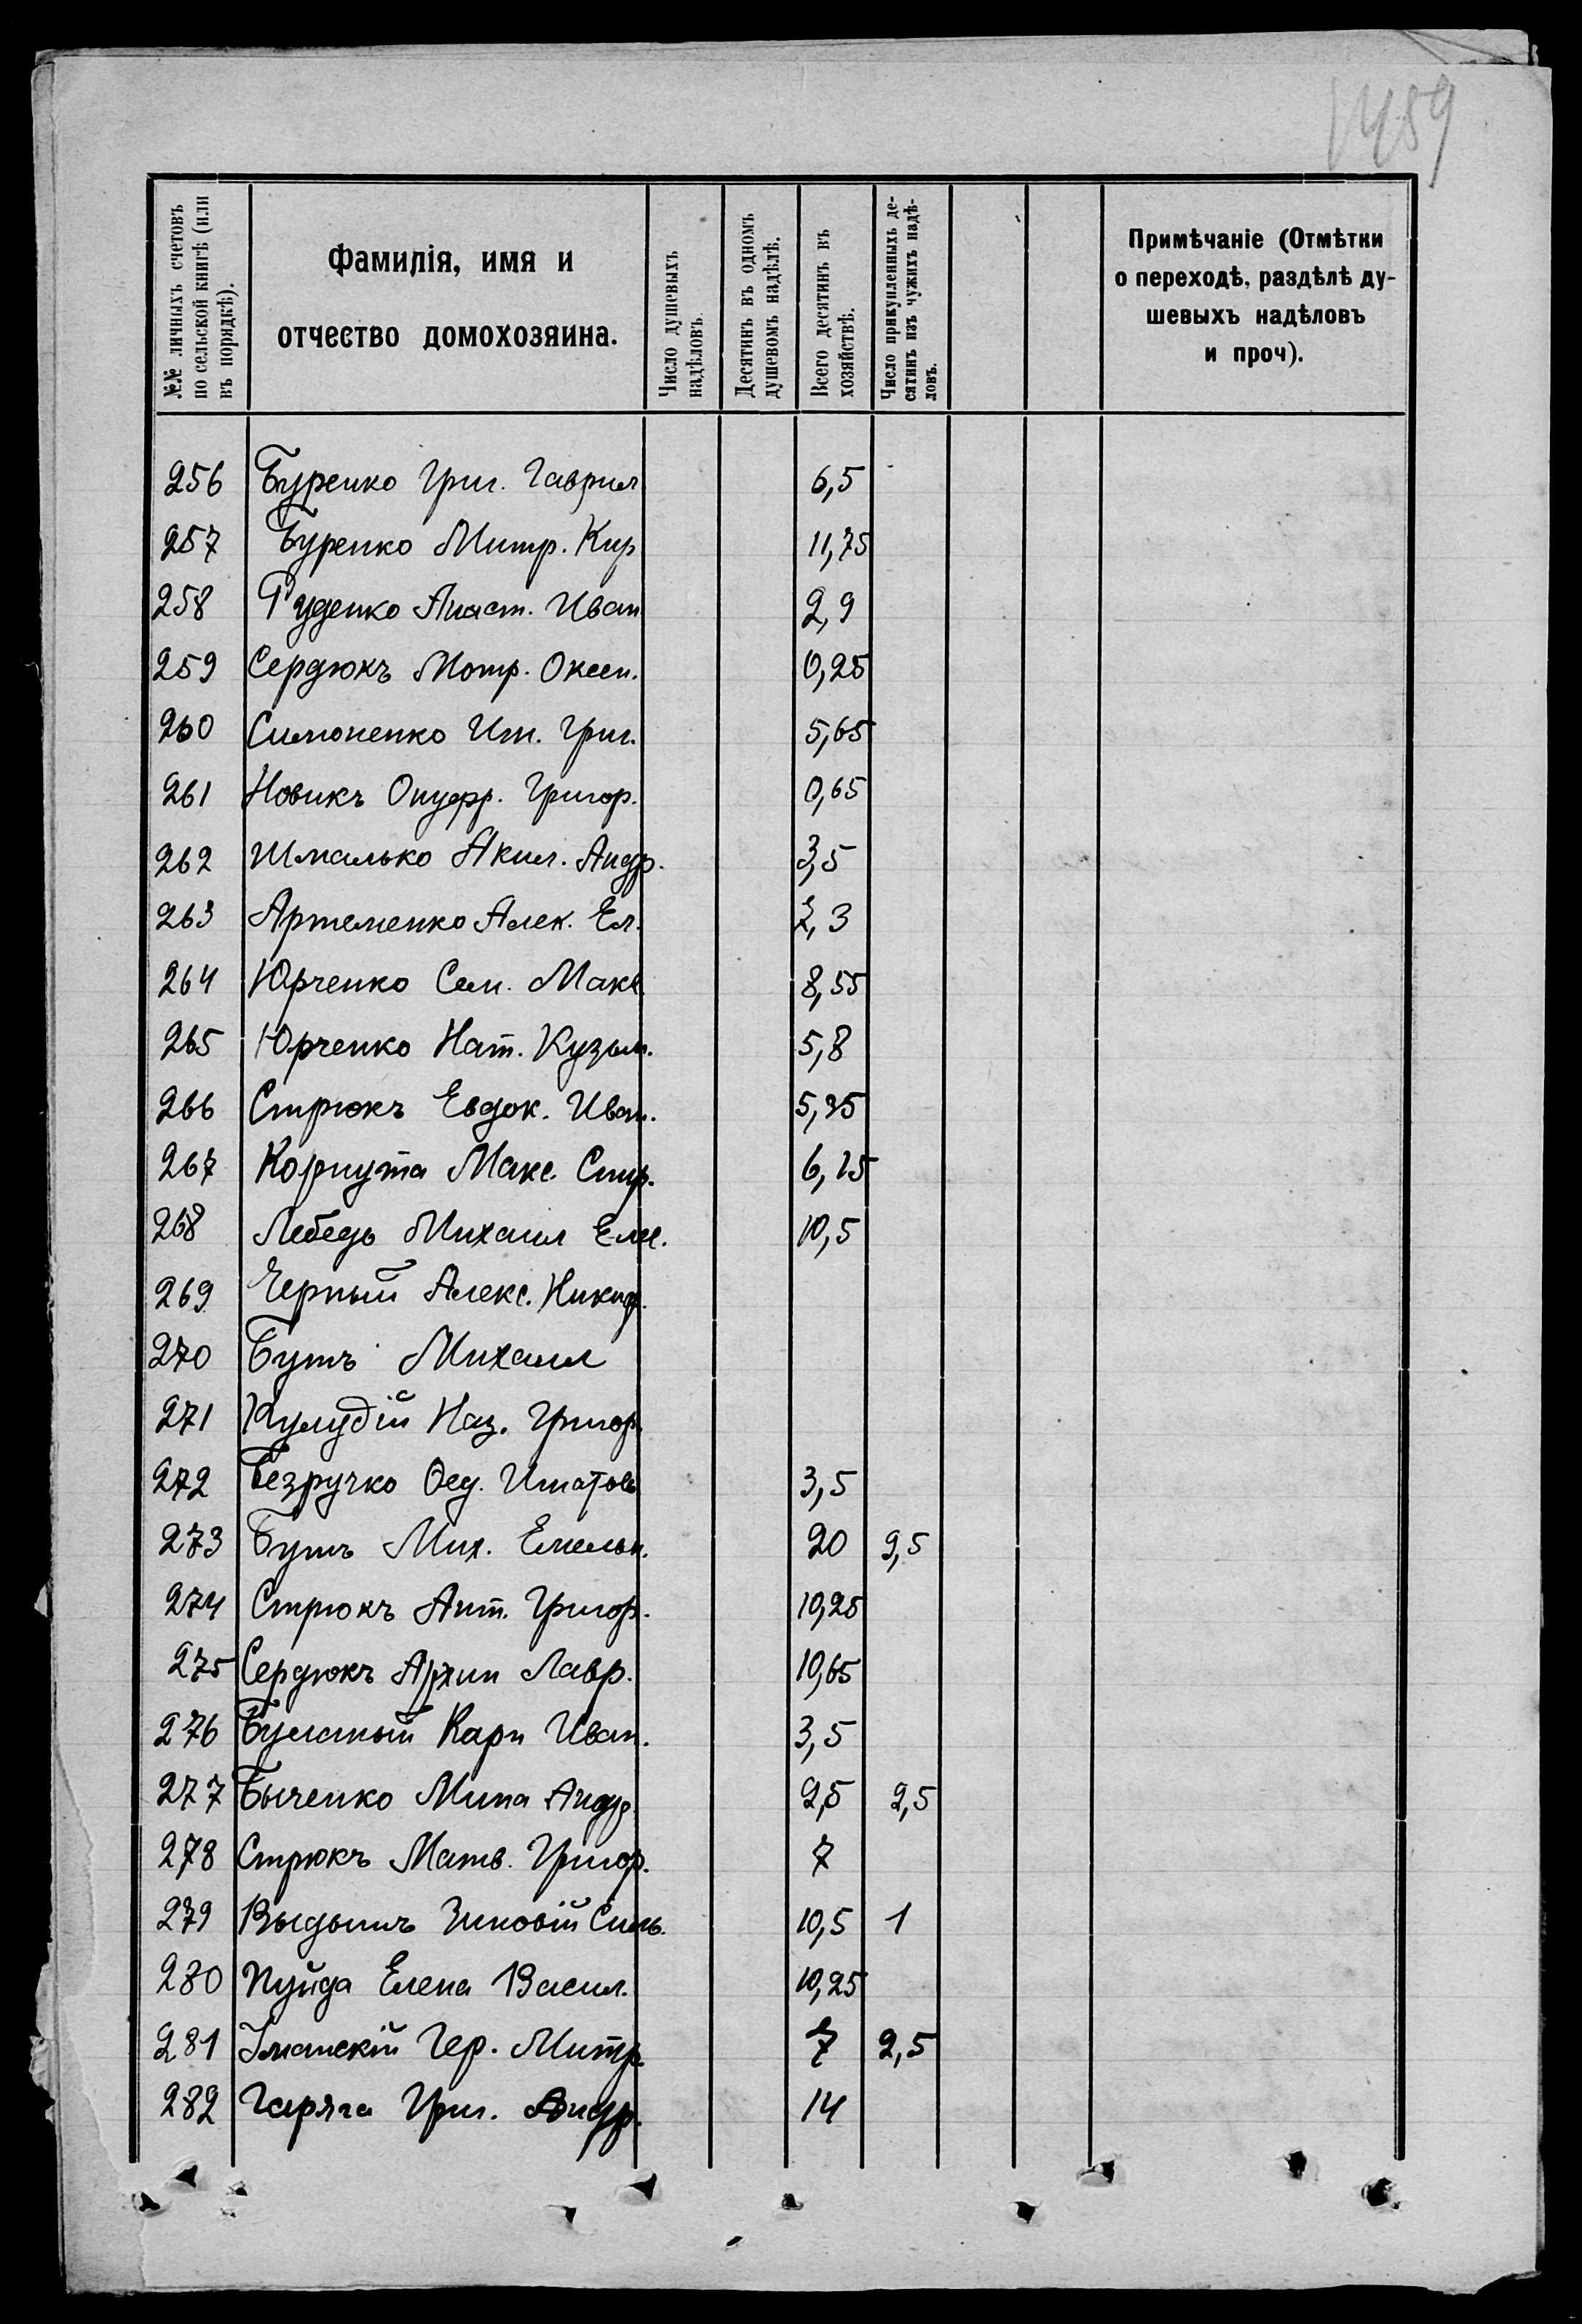 1459
№№ личныхъ счетовъ по сельской книгѣ (или въ порядкѣ).
Фамилія, имя и отчество домохозяина.
Число душевыхъ надѣловъ.
Десятинъ въ одномъ душевомъ надѣлѣ.
Всего десятинъ въ хозяйствѣ.
Число прикупленныхъ десятинъ изъ чужихъ надѣловъ.
Примѣчаніе (Отмѣтки о переходѣ, раздѣлѣ душевыхъ надѣловъ и проч).
256 Буренко Григ. Гаврил 6,5
257 Буренко Митр. Кир 11,75
258 Руденко Анаст. Иван 2,9
259 Сердюкъ Мотр. Оксен. 0,25
260 Симоненко Игн. Григ. 5,65
261 Новикъ Онуфр. Григор. 0,65
262 Шмалько Акил. Андр. 3,5
263 Артеменко Алек. Ел. 2,3
264 Юрченко Сем. Макс. 8,55
265 Юрченко Нат. Кузьм. 5,8
266 Стрюкъ Евдок. Иван. 5,35
267 Корнута Макс. Спир. 6,15
268 Лебедь Михаил Елис. 10,5
269 Черный Алекс. Никиф.
270 Бутъ Михаил
271 Наз. Григор.
272 Безручко Фед. Игнатов 3,5
273 Бутъ Мих. Емельян. 20 2,5
274 Стрюкъ Ант. Григор. 10,25
275 Сердюкъ Архип Лавр. 10,65
276 Карп Иван. 3,5
277 Быченко Мина Андр. 2,5 2,5
278 Стрюкъ Матв. Григор. 7
279 Зиновій 10,5 1
280 Пуйда Елена Васил. 10,25
281 Уманскій Гер. Митр. 7 2,5
282 Гаряга Григ. Андр. 14